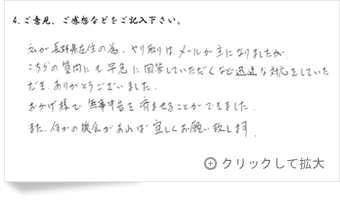 4.ご意見、ご感想などをご記入下さい。
私が長野県在住の為、やり取りはメールが主になりましたが、
こちらの質問にも早急に回答していただくなど迅速な対応をしていた
だき、ありがとうございました。
おかげ様で無事申告を済ませることができました。
また、何かの機会があれば宜しくお願い致します。
クリックして拡大